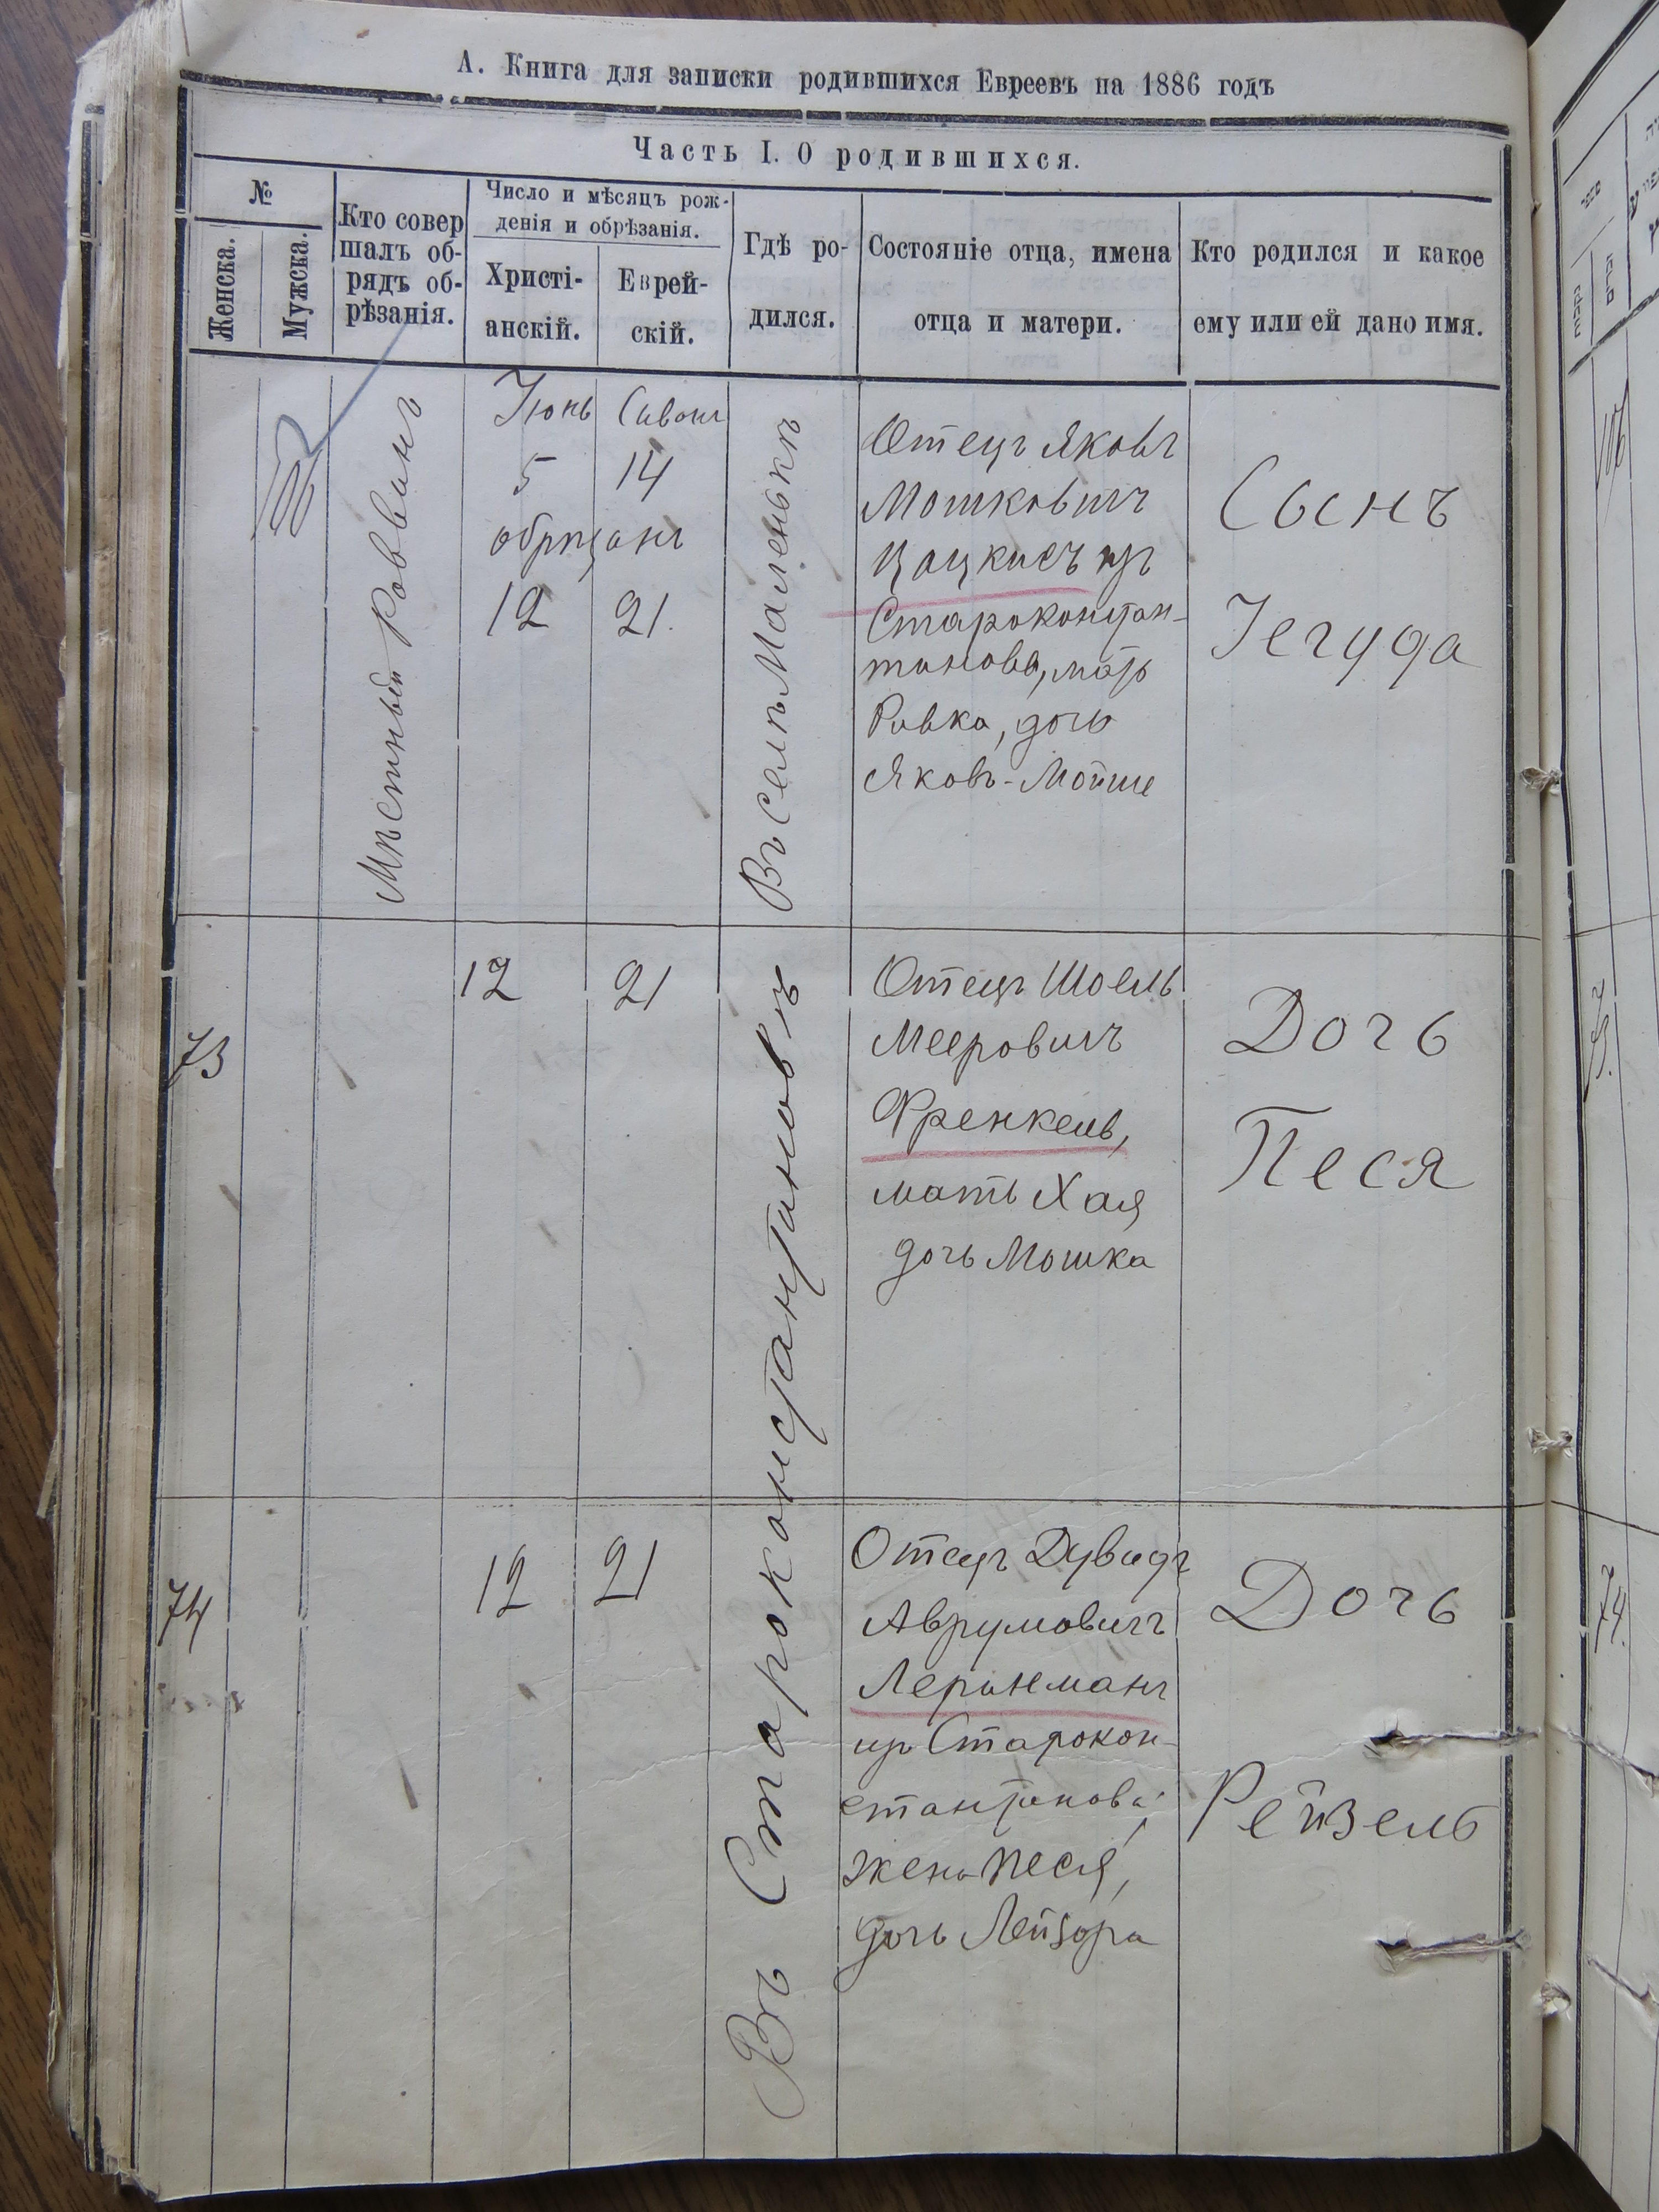 А. Книга для записки родившихся Евреевъ на 1886 годъ
Часть I. О родившихся.
№
Женска.
Мужска.
Кто совер
шалъ об-
рядъ об-
рѣзанія.
Число и мѣсяцъ рож-
денія и обрѣзанія.
Христі-
анскій.
Еврей-
скій.
Гдѣ ро-
дился.
Состояніе отца, имена
отца и матери.
Кто родился и какое
ему или ей дано имя.
Мѣстный Раввинъ
Іюнь Сиванъ
5 14
обрѣзанъ
12 21.
Въ селѣ Маленькѣ
Отецъ Яковъ
Мошковичъ
Цацкисъ изъ
Староконстан-
тинова, мать
Ривка, дочь
Яковъ-Мойше
Сынъ
Іегуда
73
12 21
Въ Староконстантиновѣ
Отецъ Шоель
Мееровичъ
Френкель,
мать Хая
дочь Мошка
Дочь
Песя
74
12 21
Отецъ Дувидъ
Аврумовичъ
изъ Старокон-
стантинова,
жена Песя,
дочь Лейзора
Дочь
Рейзель
74.